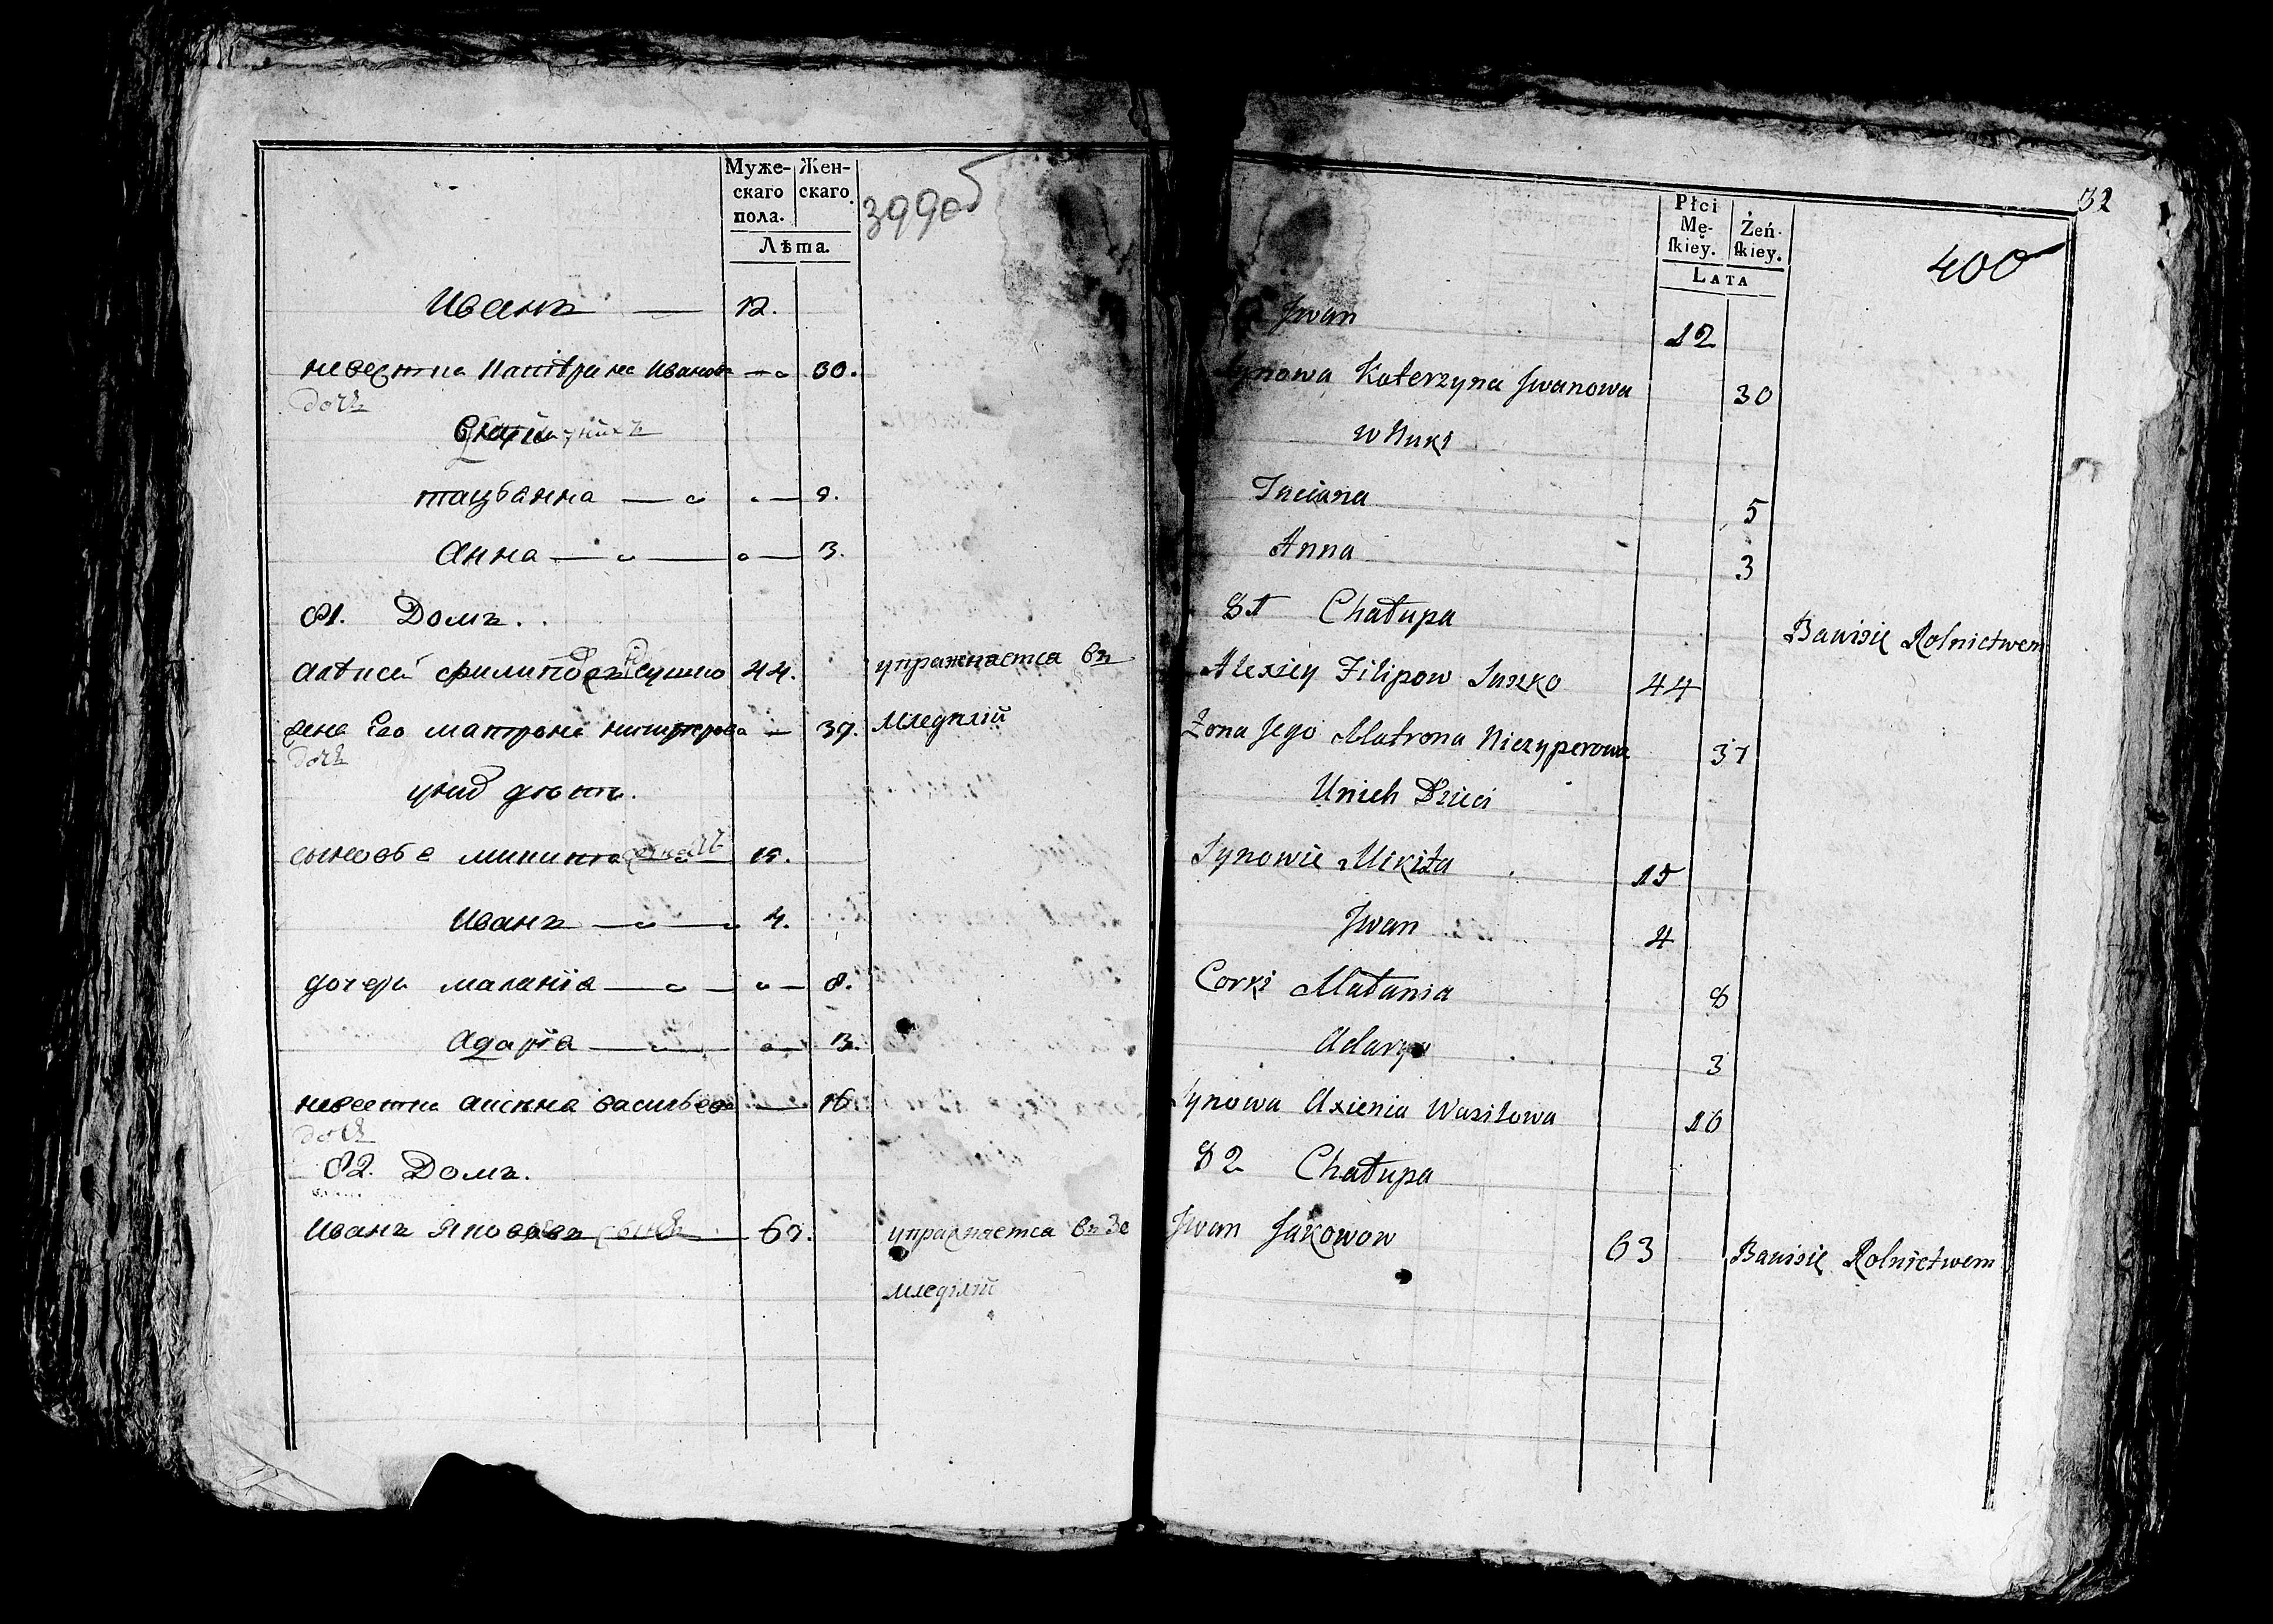 Муже-
скаго
пола.
Жен-
скаго.
Лѣта.
399об
Иванъ — 12.
невестка Катѣрина Иванова — 30.
дочь
у нихъ
тацьянна — — 5.
Анна — — 3.
81. Домъ.
Алѣксей Филиповъ Сушко 44. упражняется въ
жена Его матрона ничыперова — 37. мледѣлій
дочь
у нихъ дѣти.
сыновья микита 15.
Иванъ — 4.
дочери маланія — — 8.
Адарія — — 3.
невестка аксинна васильева — 16
дочь
82. Домъ.
Иванъ Яковавъ сынъ 63. упражняется въ Зе
мледѣлій
32
Płci
Mę-
ſkiey.
Żeń-
ſkiey.
LATA
400
Jwan 12
Synowa Katerzyna Jwanowa 30
wnuki
Taciana 5
Anna 3
81 Chałupa
Bawisię Rolnictwem
Alexiey Filipow Suszko 44
Żona Jego Matrona Niczyperowa 37
Unich Dzieci
Synowie Mikita 15
Jwan 4
Corki Małania 8
Adarya 3
Synowa Axienia Wasilowa 16
82 Chałupa
Jwan Jakowow 63 Bawisię Rolnictwem